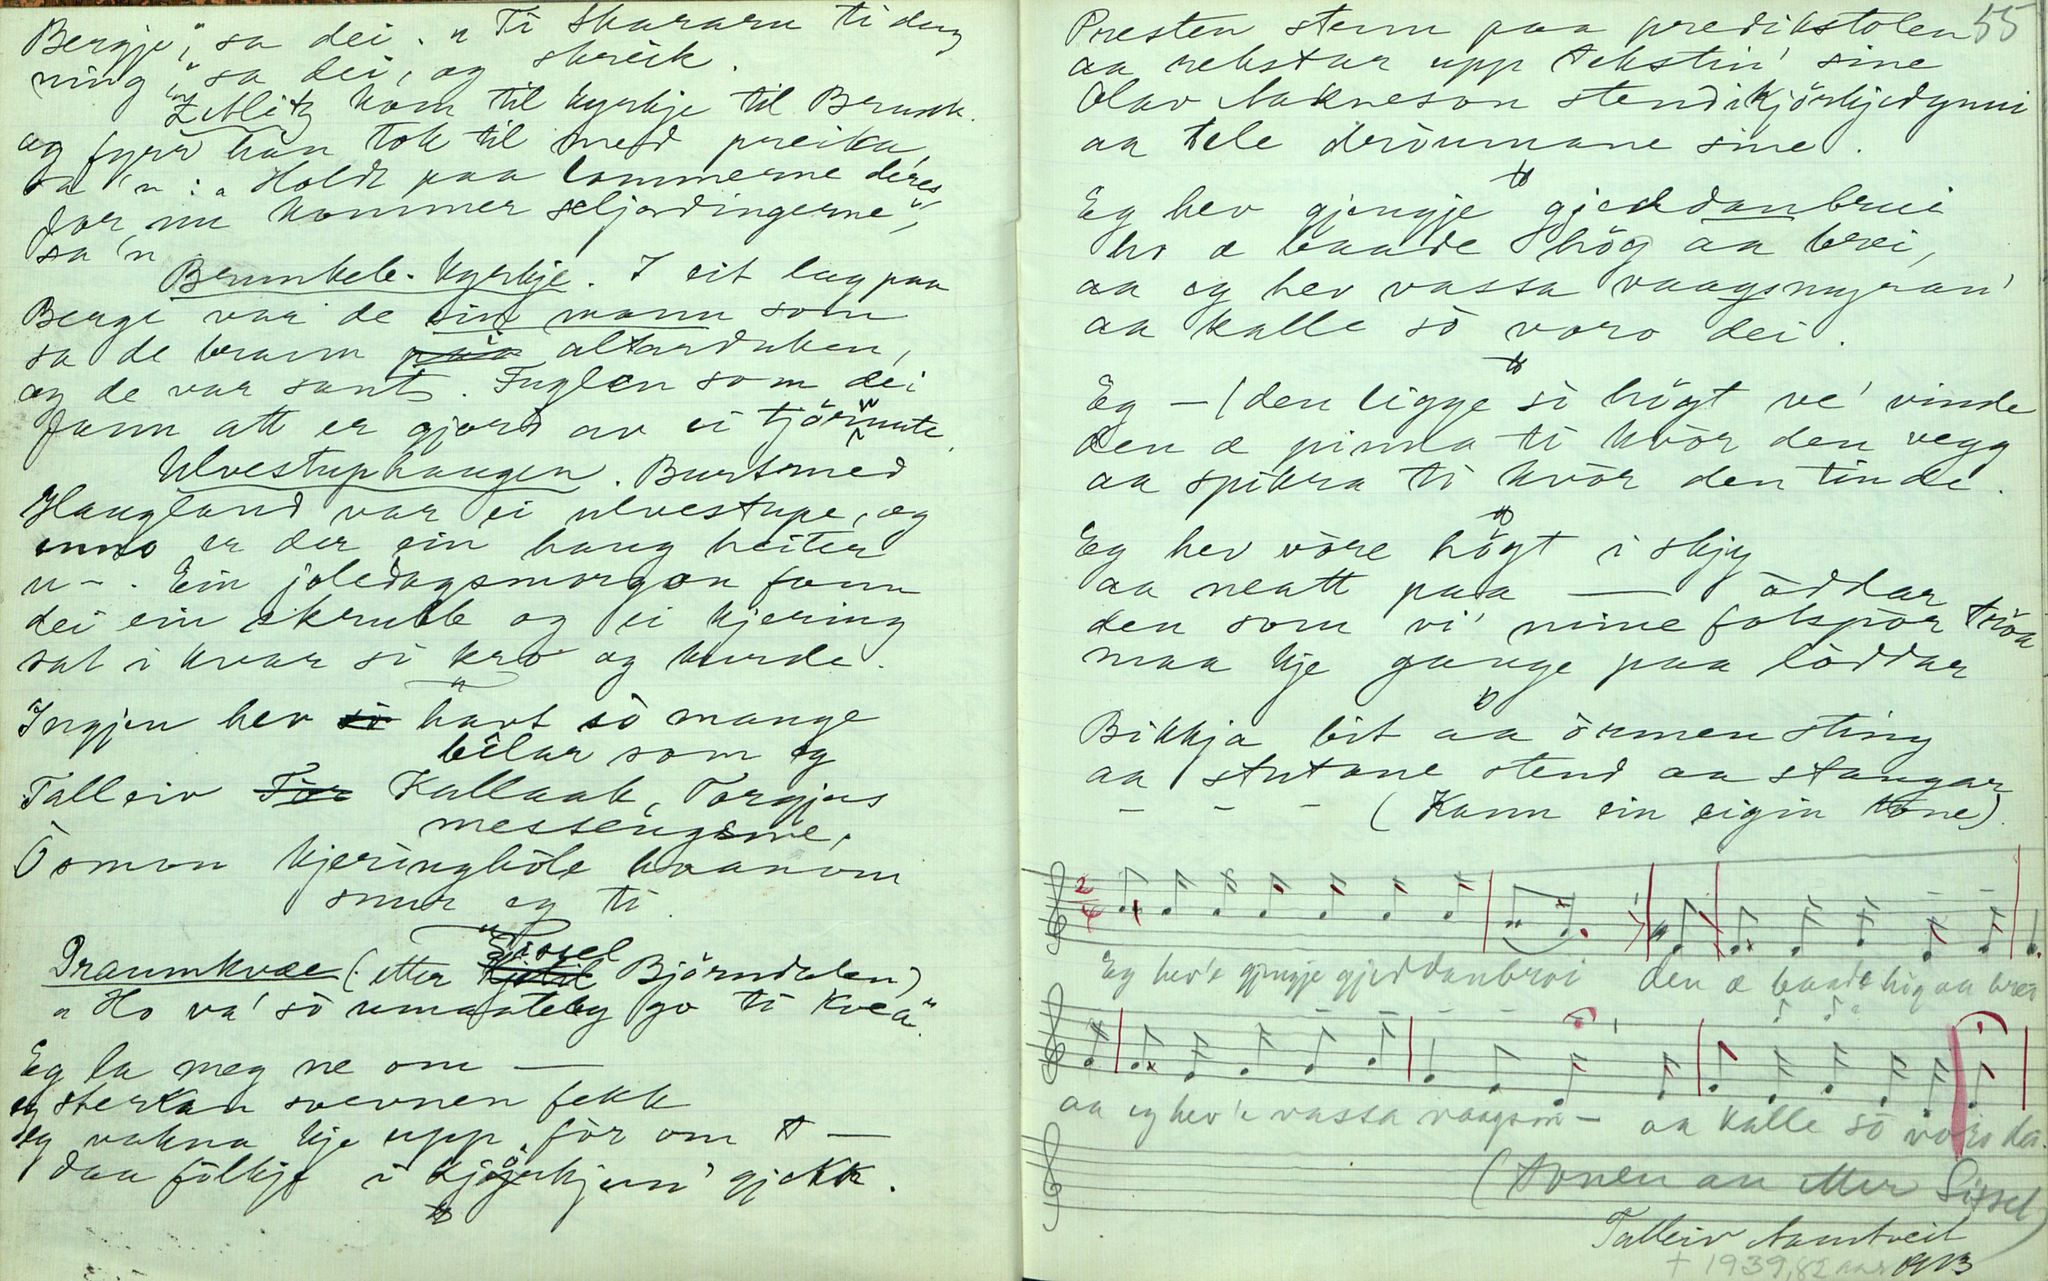 Bergje", sa dei. "Ti Skararu ti deng
ning" sa dei, og skreik.
Zeblitz kom til kyrkje til Brunk.
og fyrr han tok til med preika,
sa 'n: "Holdt paa lommerne deres
for nu kommer seljordingerne",
sa 'n
Brunkeb. kyrkje. I eit lag paa
Berge var de ein mann som
sa de brann paa altarduken,
og de var sant. Fuglen som dei
fann att er gjord av ei tjörnute.
Ulvestuphaugen. Burtmed
Haugland var ei ulvestupe, og
enno er der ein haug heiter
u-. Ein joledagsmorgon fann
dei ein skrubb og ei kjering
sat i kvar si kro og kurde.
Ingjen hev so havt so mange
belar som eg
Talleiv Tor Kallaak, Torgjus
messengsme,
Osmon kjeringhole haanom
snur eg ti
Draumkvæe (etter Kjetil Sissel Björndalen)
"Ho va' so umaateleg go ti kvea".
Eg la meg ne om —
eg sterkan svevnen fekk
eg vakna kje upp för om t —
daa fölkje i kjörkjun' gjekk.
55
Presten stenn paa predikstolen
aa rekstar upp tekstin' sine
Olav Aakneson stend i kjörkjedynni
aa tele dröumane sine.
Eg hev gjengje gjeddanbrui
ho æ baade hög aa brei,
aa eg hev vassa vaagsmyran'
aa kalle so voro dei.
Eg — (den ligge so högt ve' vinde
den æ pinna ti kvor den vegg
aa spikra ti kvor den tinde.
Eg hev vöre högt i skjy
aa neatt paa — oddar
den som vi' mine fotspor tröa
maa kje gange paa loddar
Bikkja bit aa ormen sting
aa stutane stend aa stangar
- - - (Kann ein eigin tone).
2/4
Eg hev'e gjengje gjeddanbroi den æ baade hög aa brei
aa eg hev'e vassa vaagsm— aa kalle so voro dei.
(Tonen an etter Sissel)
Talleiv Aamtveit
† 1939, 82 aar 1913